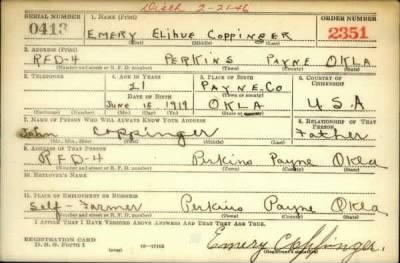 Disch 2-21-46
SERIAL NUMBER 1. NAME (Print) ORDER NUMBER
0413 EMERY Elihue Coppinger 2351
(First) (Middle) (Last)
2. ADDRESS (Print)
RFD-4 PERKINS PAYNE OKLA
(Number and street or R. F. D. number) (Town) (County) (State)
3. TELEPHONE 4. AGE IN YEARS 5. PLACE OF BIRTH 6. COUNTRY OF CITIZENSHIP
21 PAYNE-Co
DATE OF BIRTH (Town or county)
June 15 1919 OKLA USA
(Mo.) (Day) (Yr.) (State or country)
7. NAME OF PERSON WHO WILL ALWAYS KNOW YOUR ADDRESS 8. RELATIONSHIP OF THAT PERSON
John Coppinger Father
(Mr., Mrs., Miss) (First) (Middle) (Last)
9. ADDRESS OF THAT PERSON
RFD-4 Perkins Payne Okla
(Number and street or R. F. D. number) (Town) (County) (State)
10. EMPLOYER'S NAME
11. PLACE OF EMPLOYMENT OR BUSINESS
Self-Farmer Perkins Payne Okla
(Number and street or R. F. D. number) (Town) (County) (State)
I AFFIRM THAT I HAVE VERIFIED ABOVE ANSWERS AND THAT THEY ARE TRUE.
REGISTRATION CARD
D. S. S. Form 1
Emery Coppinger
(Registrant's signature)